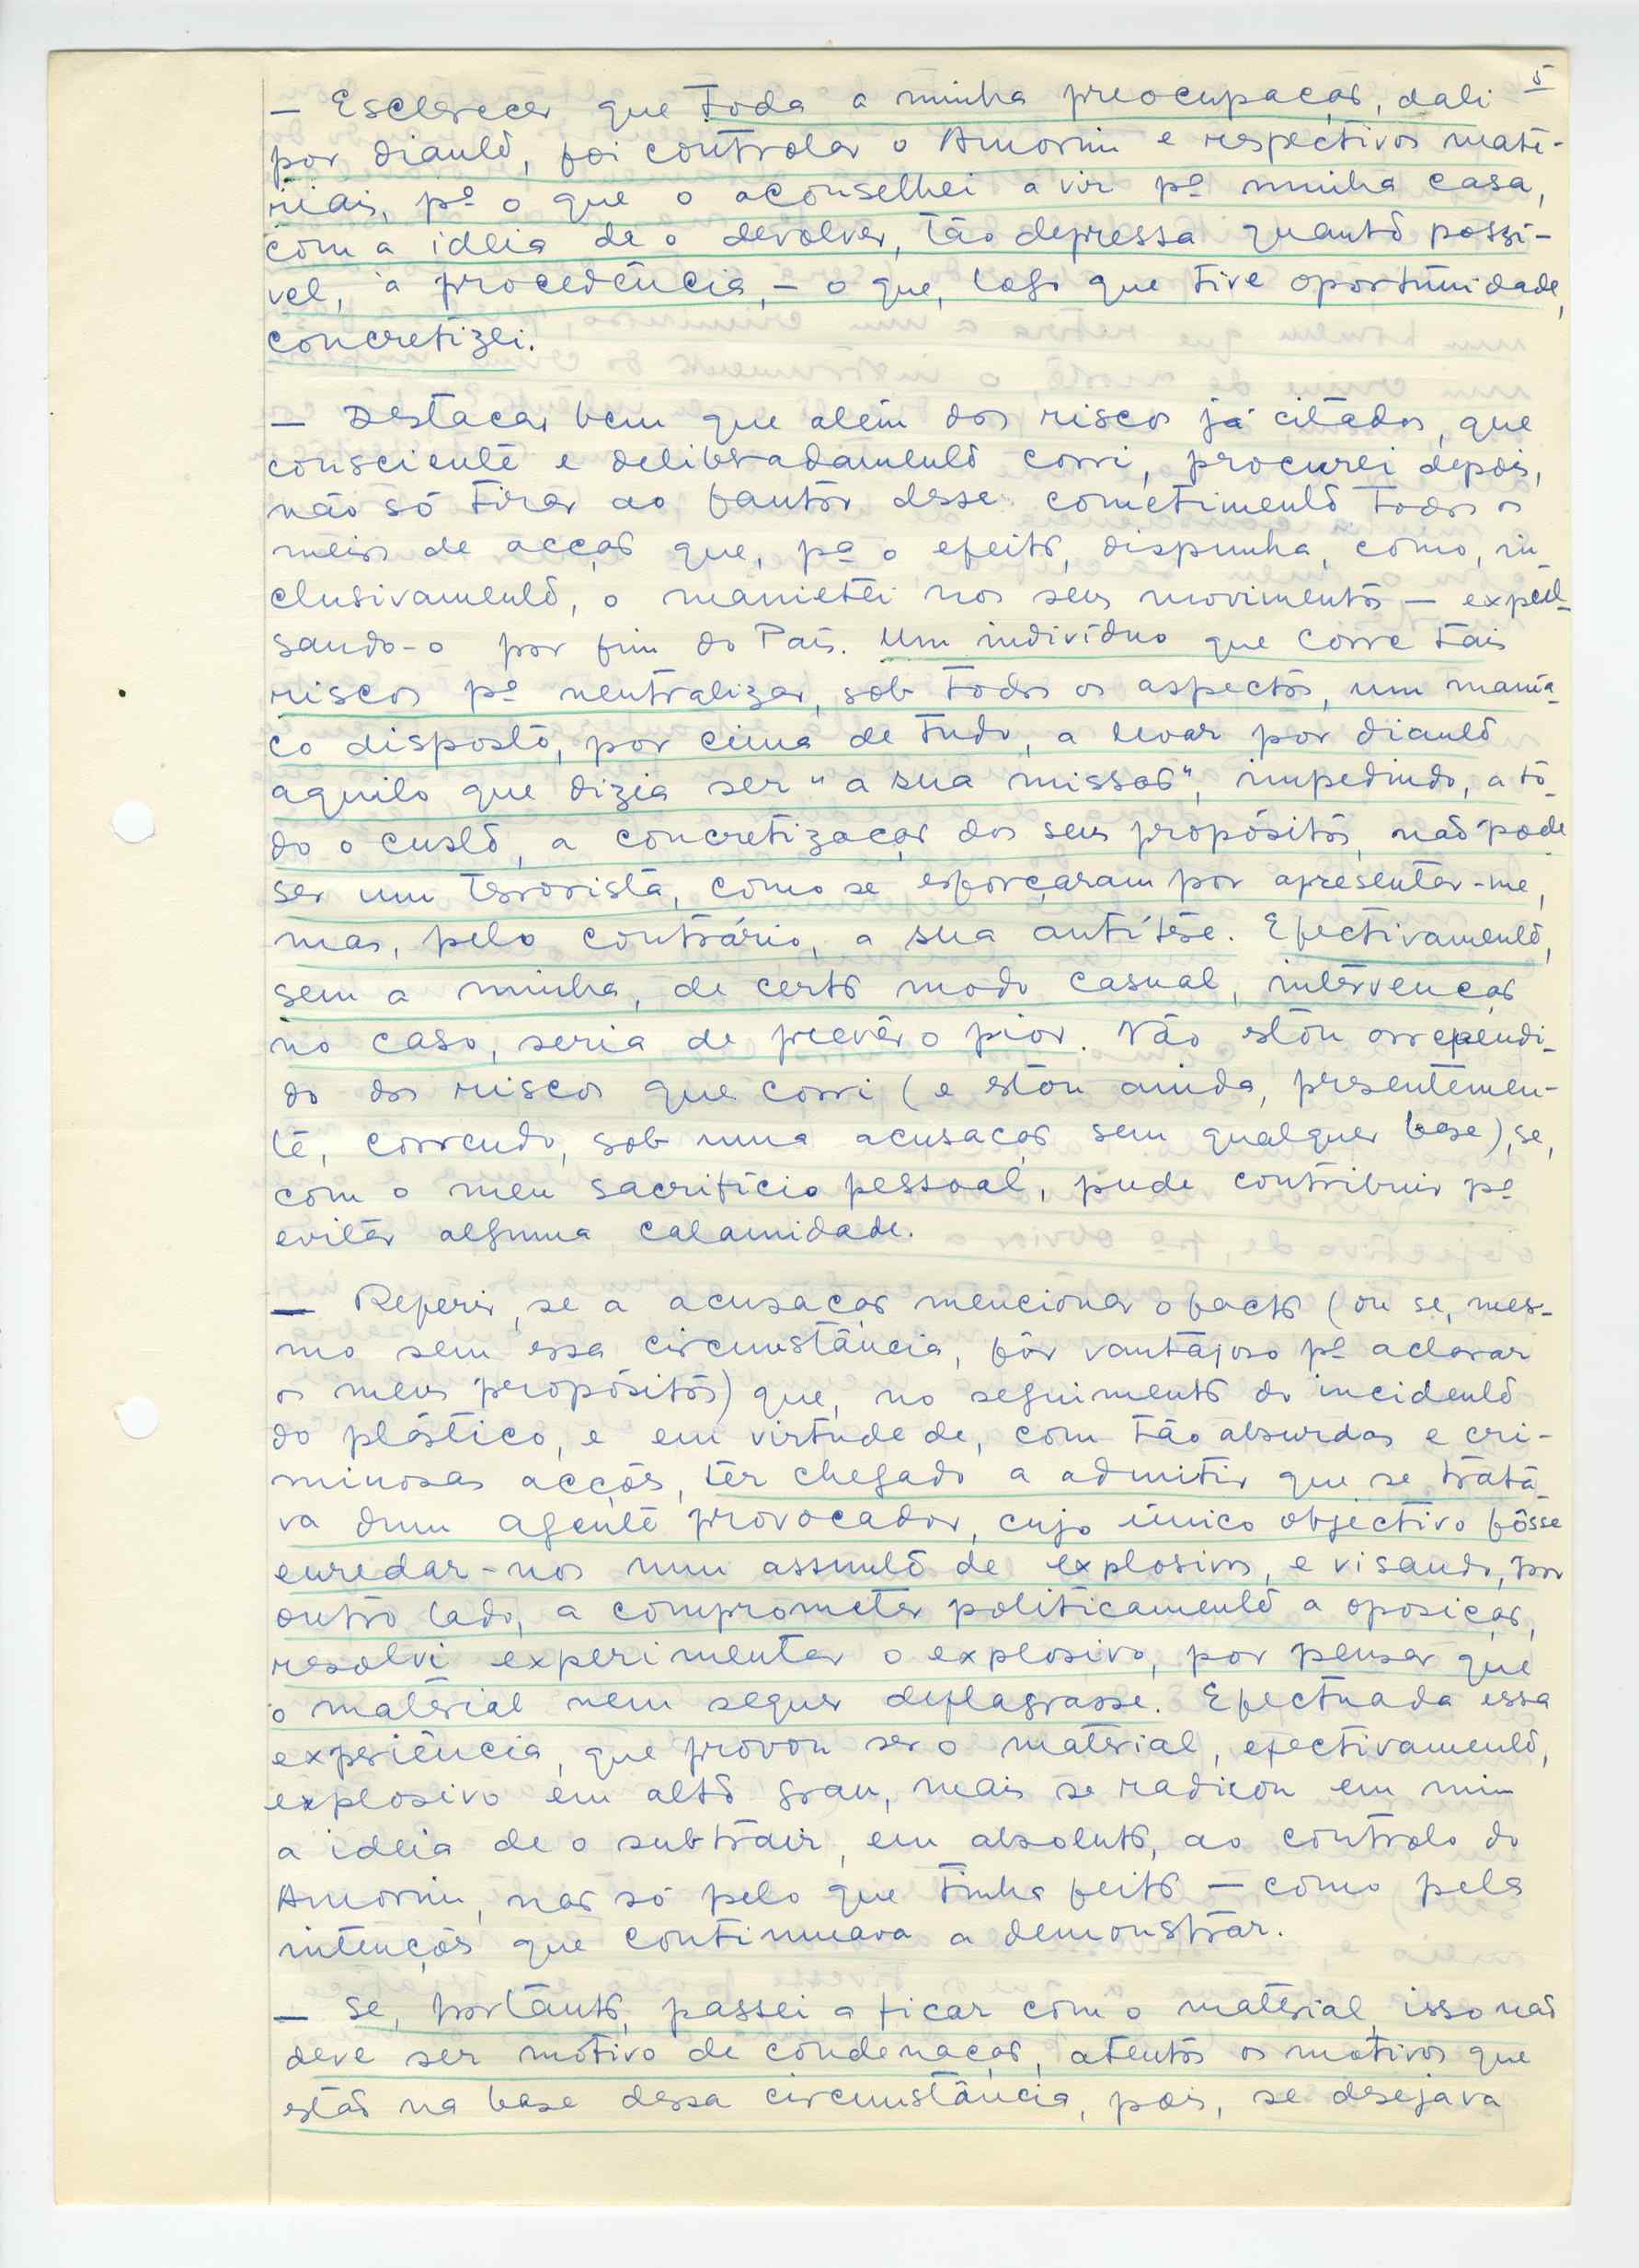 5
— Esclarecer que toda a minha preocupação, dali
por diante, foi controlar o Amorim e respectivos maté-
riais, pª o que o aconselhei a vir pª minha casa,
com a ideia de o devolver, tão depressa quanto possí-
vel, à procedência, — o que, logo que tive oportunidade,
concretizei.
— Destacar bem que além dos riscos já citados, que
consciente e deliberadamente corri, procurei depois,
não só tirar ao fautor desse cometimento todos os
meios de acção que, pª o efeito, dispunha, como, in_
clusivamente, o manietei nos seus movimentos — expul_
sando-o por fim do País. Um indivíduo que corre tais
riscos pª neutralizar, sob todos os aspectos, um manía_
co disposto, por cima de tudo, a levar por diante
aquilo que dizia ser "a sua missão", impedindo, a tô_
do o custo, a concretização dos seus propósitos, não pode
ser um terrorista, como se esforçaram por apresentar-me,
mas, pelo contrário, a sua antítese. Efectivamente,
sem a minha, de certo modo casual, intervenção
no caso, seria de prevêr o pior. Não estou arrependi_
do dos riscos que corri (e estou ainda, presentemen-
te, correndo, sob uma acusação sem qualquer base), se,
com o meu sacrifício pessoal, pude contribuir pª
evitar alguma calamidade.
— Referir, se a acusação mencionar o facto (ou se, mes-
mo sem essa circunstância, fôr vantajoso pª aclarar
os meus propósitos) que, no seguimento do incidente
do plástico, e em virtude de, com tão absurdas e cri-
minosas acções, ter chegado a admitir que se tratá_
va dum agente provocador, cujo único objectivo fôsse
enredar-nos num assunto de explosivos, e visando, por
outro lado, a comprometer politicamente a oposição,
resolvi experimentar o explosivo, por pensar que
o material nem sequer deflagrasse. Efectuada essa
experiência, que provou ser o material, efectivamente,
explosivo em alto grau, mais se radicou em mim
a ideia de o subtrair, em absoluto, ao controlo do
Amorim, não só pelo que tinha feito — como pela
intenções que continuava a demonstrar.
— Se, portanto, passei a ficar com o material, isso não
deve ser motivo de condenação, atentos os motivos que
estão na base dessa circunstância, pois, se desejava